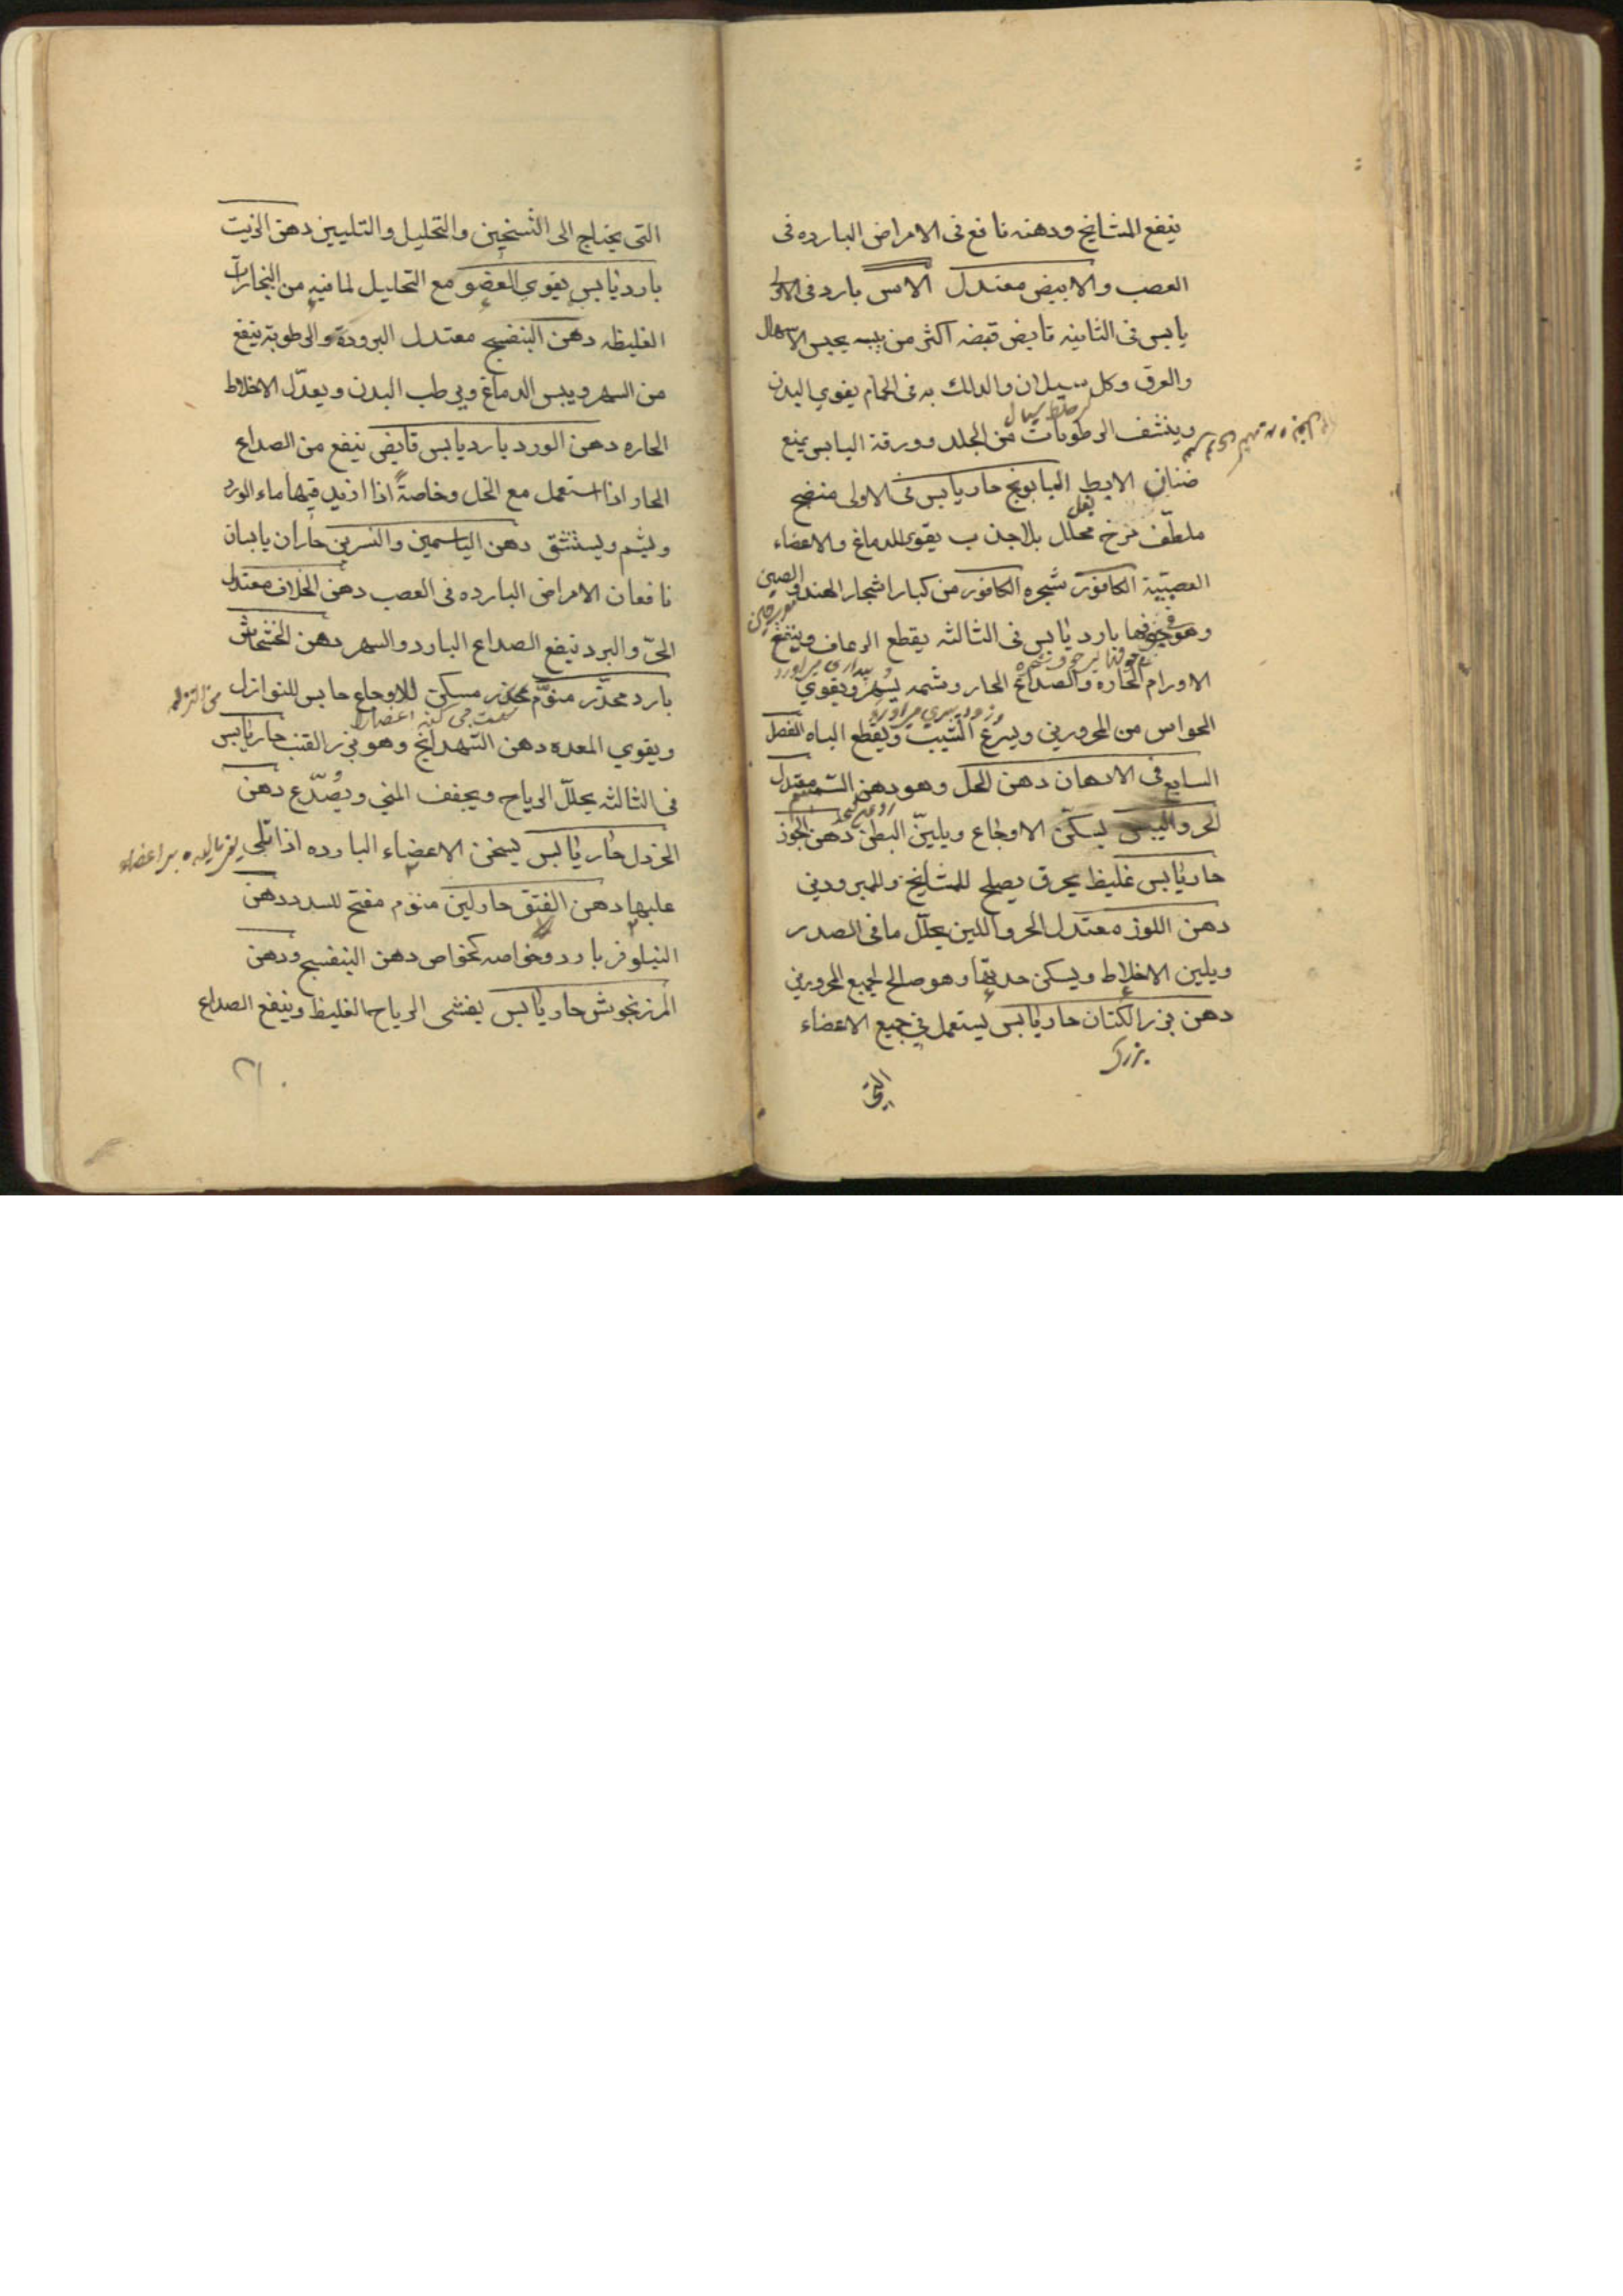 ينفع المشايخ ودهنه نافع فى الامراض البارده فى
العصب والابيض معتدل الاس بارد فى الاولى
يابس فى الثانيه قابض قبضه اكثر من يبسه يحبس الاسهال
والعرق وكل سيلان والدلك به فى الحمام يقوي البدن
وينشف الرطوبات من الجلد وورقة اليابس يمنع
ضنان الابط البابونج حار يابس فى الاولى منضج
ملطّف مرخ محلل بلا جذب يقوى الدماغ والاعضاء
العصبيّة الكافور شجره الكافور من كبار اشجار الهند والصين
وهو بارد يابس فى الثالثه يقطع الرعاف وينفع
الاورام الحاره والصداع الحار وشمه يسهر ويقوي
الحواس من المحرورين ويسرع الشيب ويقطع الباه الفصل
السابع فى الادهان دهن الحل وهو دهن السمسم معتدل
الحر واليبس يسكّن الاوجاع ويليّن البطن دهن الجوز
حار يابس غليظ يحرق يصلح للمشايخ وللمبرودين
دهن اللوز معتدل الحر واللين يحلّل ما فى الصدر
ويلين الاخلاط ويسكن حدتها وهو صالح لجميع المحرورين
دهن بزر الكتان حار يابس يستعمل في جميع الاعضاء
بزرك
التى
التى يحتاج الى التسخين والتحليل والتليين دهن الزيت
بارد يابس يقوي العضو مع التحليل لما فيه من البخارات
الغليظه دهن البنفسج معتدل البرودة والرطوبة ينفع
من السهر ويبس الدماغ ويرطب البدن ويعدّل الاخلاط
الحاره دهن الورد بارد يابس قابض ينفع من الصداع
الحار اذا استعمل مع الخل وخاصةً اذا ازيد فيها ماء الورد
ويشم ويستنشق دهن الياسمين والنسرين حاران يابسان
نافعان الامراض البارده فى العصب دهن الخلاف معتدل
الحرّ والبرد ينفع الصداع البارد والسهر دهن الخشخاش
بارد مخدّر منوّم مسكن للاوجاع حابس للنوازل
ويقوي المعده دهن الشهدانج وهو بزر القنب حار يابس
فى الثالثه يحلّل الرياح ويجفف المني ويُصدّع دهن
الخردل حار يابس يسخن الاعضاء البارده اذا طلى
عليها دهن الفستق حار لين منوّم مفتح للسدد دهن
النيلوفر بارد وخواصه كخواص دهن البنفسج ودهن
المرزنجوش حار يابس يفشى الرياح الغليظ وينفع الصداع